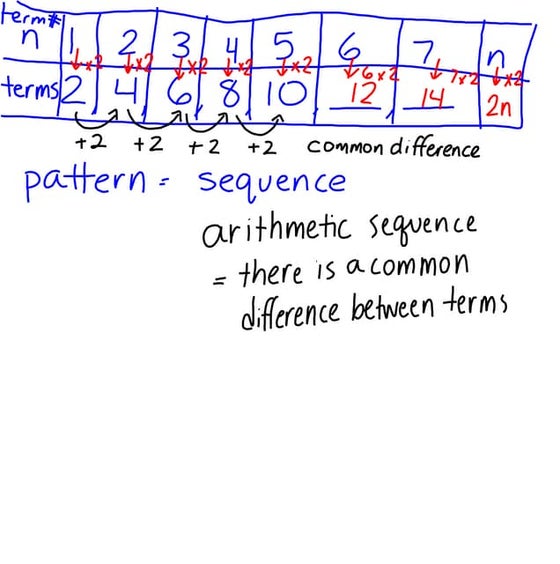 term#
n 1 2 3 4 5 6 7 n
↓×2 ↓×2 ↓×2 ↓×2 ↓×2 ↓6×2 ↓7×2 ↓×2
terms 2 4 6 8 10 12 14 2n
+2 +2 +2 +2 common difference
pattern = sequence
arithmetic sequence
= there is a common
difference between terms